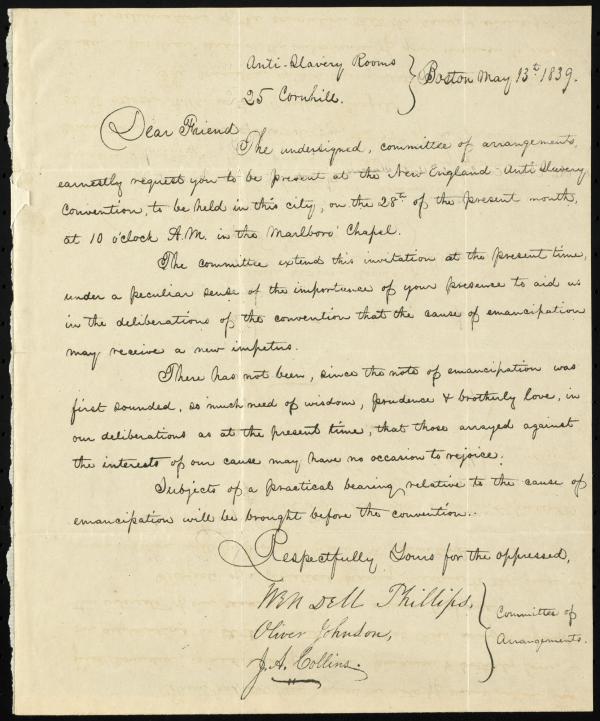 Anti-Slavery Rooms
25 Cornhill. } Boston May 13th 1839.
Dear Friend
The undersigned, committee of arrangements,
earnestly request you to be present at the New England Anti Slavery
Convention, to be held in this city, on the 28th of the present month,
at 10 o'clock A.M. in the Marlboro' Chapel.
The committee extend this invitation at the present time,
under a peculiar sense of the importance of your presence to aid us
in the deliberations of the convention that the cause of emancipation
may receive a new impetus.
There has not been, since the note of emancipation was
first sounded, so much need of wisdom, prudence & brotherly love, in
our deliberations as at the present time, that those arrayed against
the interests of our cause may have no occasion to rejoice.
Subjects of a practical bearing relative to the cause of
emancipation will be brought before the convention.
Respectfully Yours for the oppressed,
Wendell Phillips,
Oliver Johnson,
J.A. Collins.
} Committee of
Arrangements.